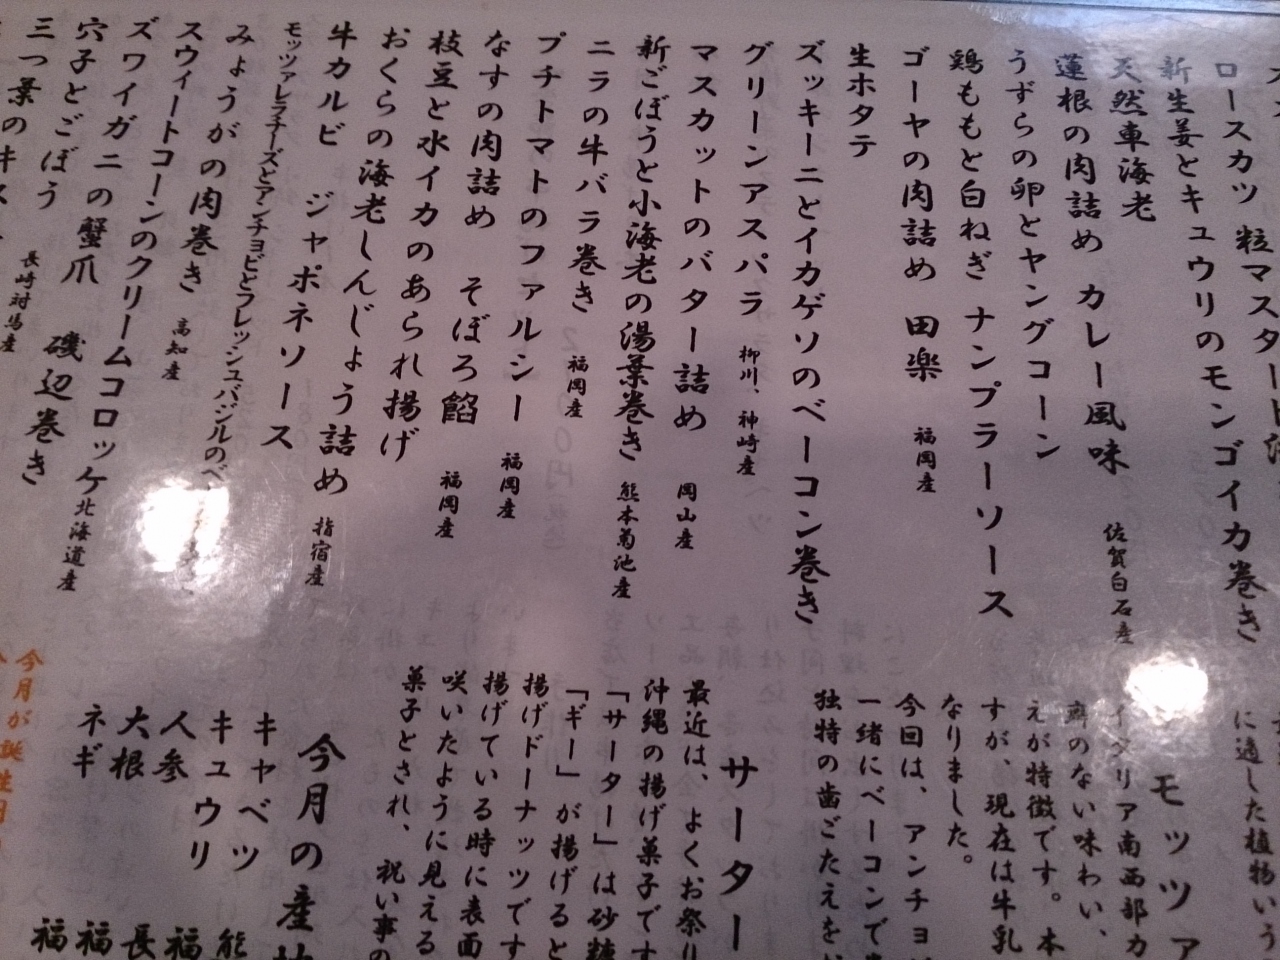 ロースカツ 粒マスタード
新生姜とキュウリのモンゴイカ巻き
天然車海老
蓮根の肉詰め カレー風味 佐賀白石産
うずらの卵とヤングコーン
鶏ももと白ねぎ ナンプラーソース
ゴーヤの肉詰め 田楽 福岡産
生ホタテ
ズッキーニとイカゲソのベーコン巻き
グリーンアスパラ 柳川、神崎産
マスカットのバター詰め 岡山産
新ごぼうと小海老の湯葉巻き 熊本菊池産
ニラの牛バラ巻き 福岡産
プチトマトのファルシー 福岡産
なすの肉詰め そぼろ餡 福岡産
枝豆と水イカのあられ揚げ
おくらの海老しんじょう詰め 指宿産
牛カルビ ジャポネソース
モッツァレラチーズとアンチョビとフレッシュバジルのベ
みょうがの肉巻き 高知産
スウィートコーンのクリームコロッケ 北海道産
ズワイガニの蟹爪
穴子とごぼう 磯辺巻き 長崎対馬産
三つ葉のキス
に適した植物いう
モッツァ
イタリア南西部カ
癖のない味わい、
えが特徴です。本
すが、現在は牛乳
なりました。
今回は、アンチョ
一緒にベーコンで
独特の歯ごたえを
サーター
最近は、よくお祭り
沖縄の揚げ菓子です
「サーター」は砂糖
「ギー」が揚げると
揚げドーナッツです
揚げている時に表面
咲いたように見える
菓子とされ、祝い事の
今月の産地
キャベツ 熊
キュウリ 福
人参 長
大根 福
ネギ 福
今月が誕生日